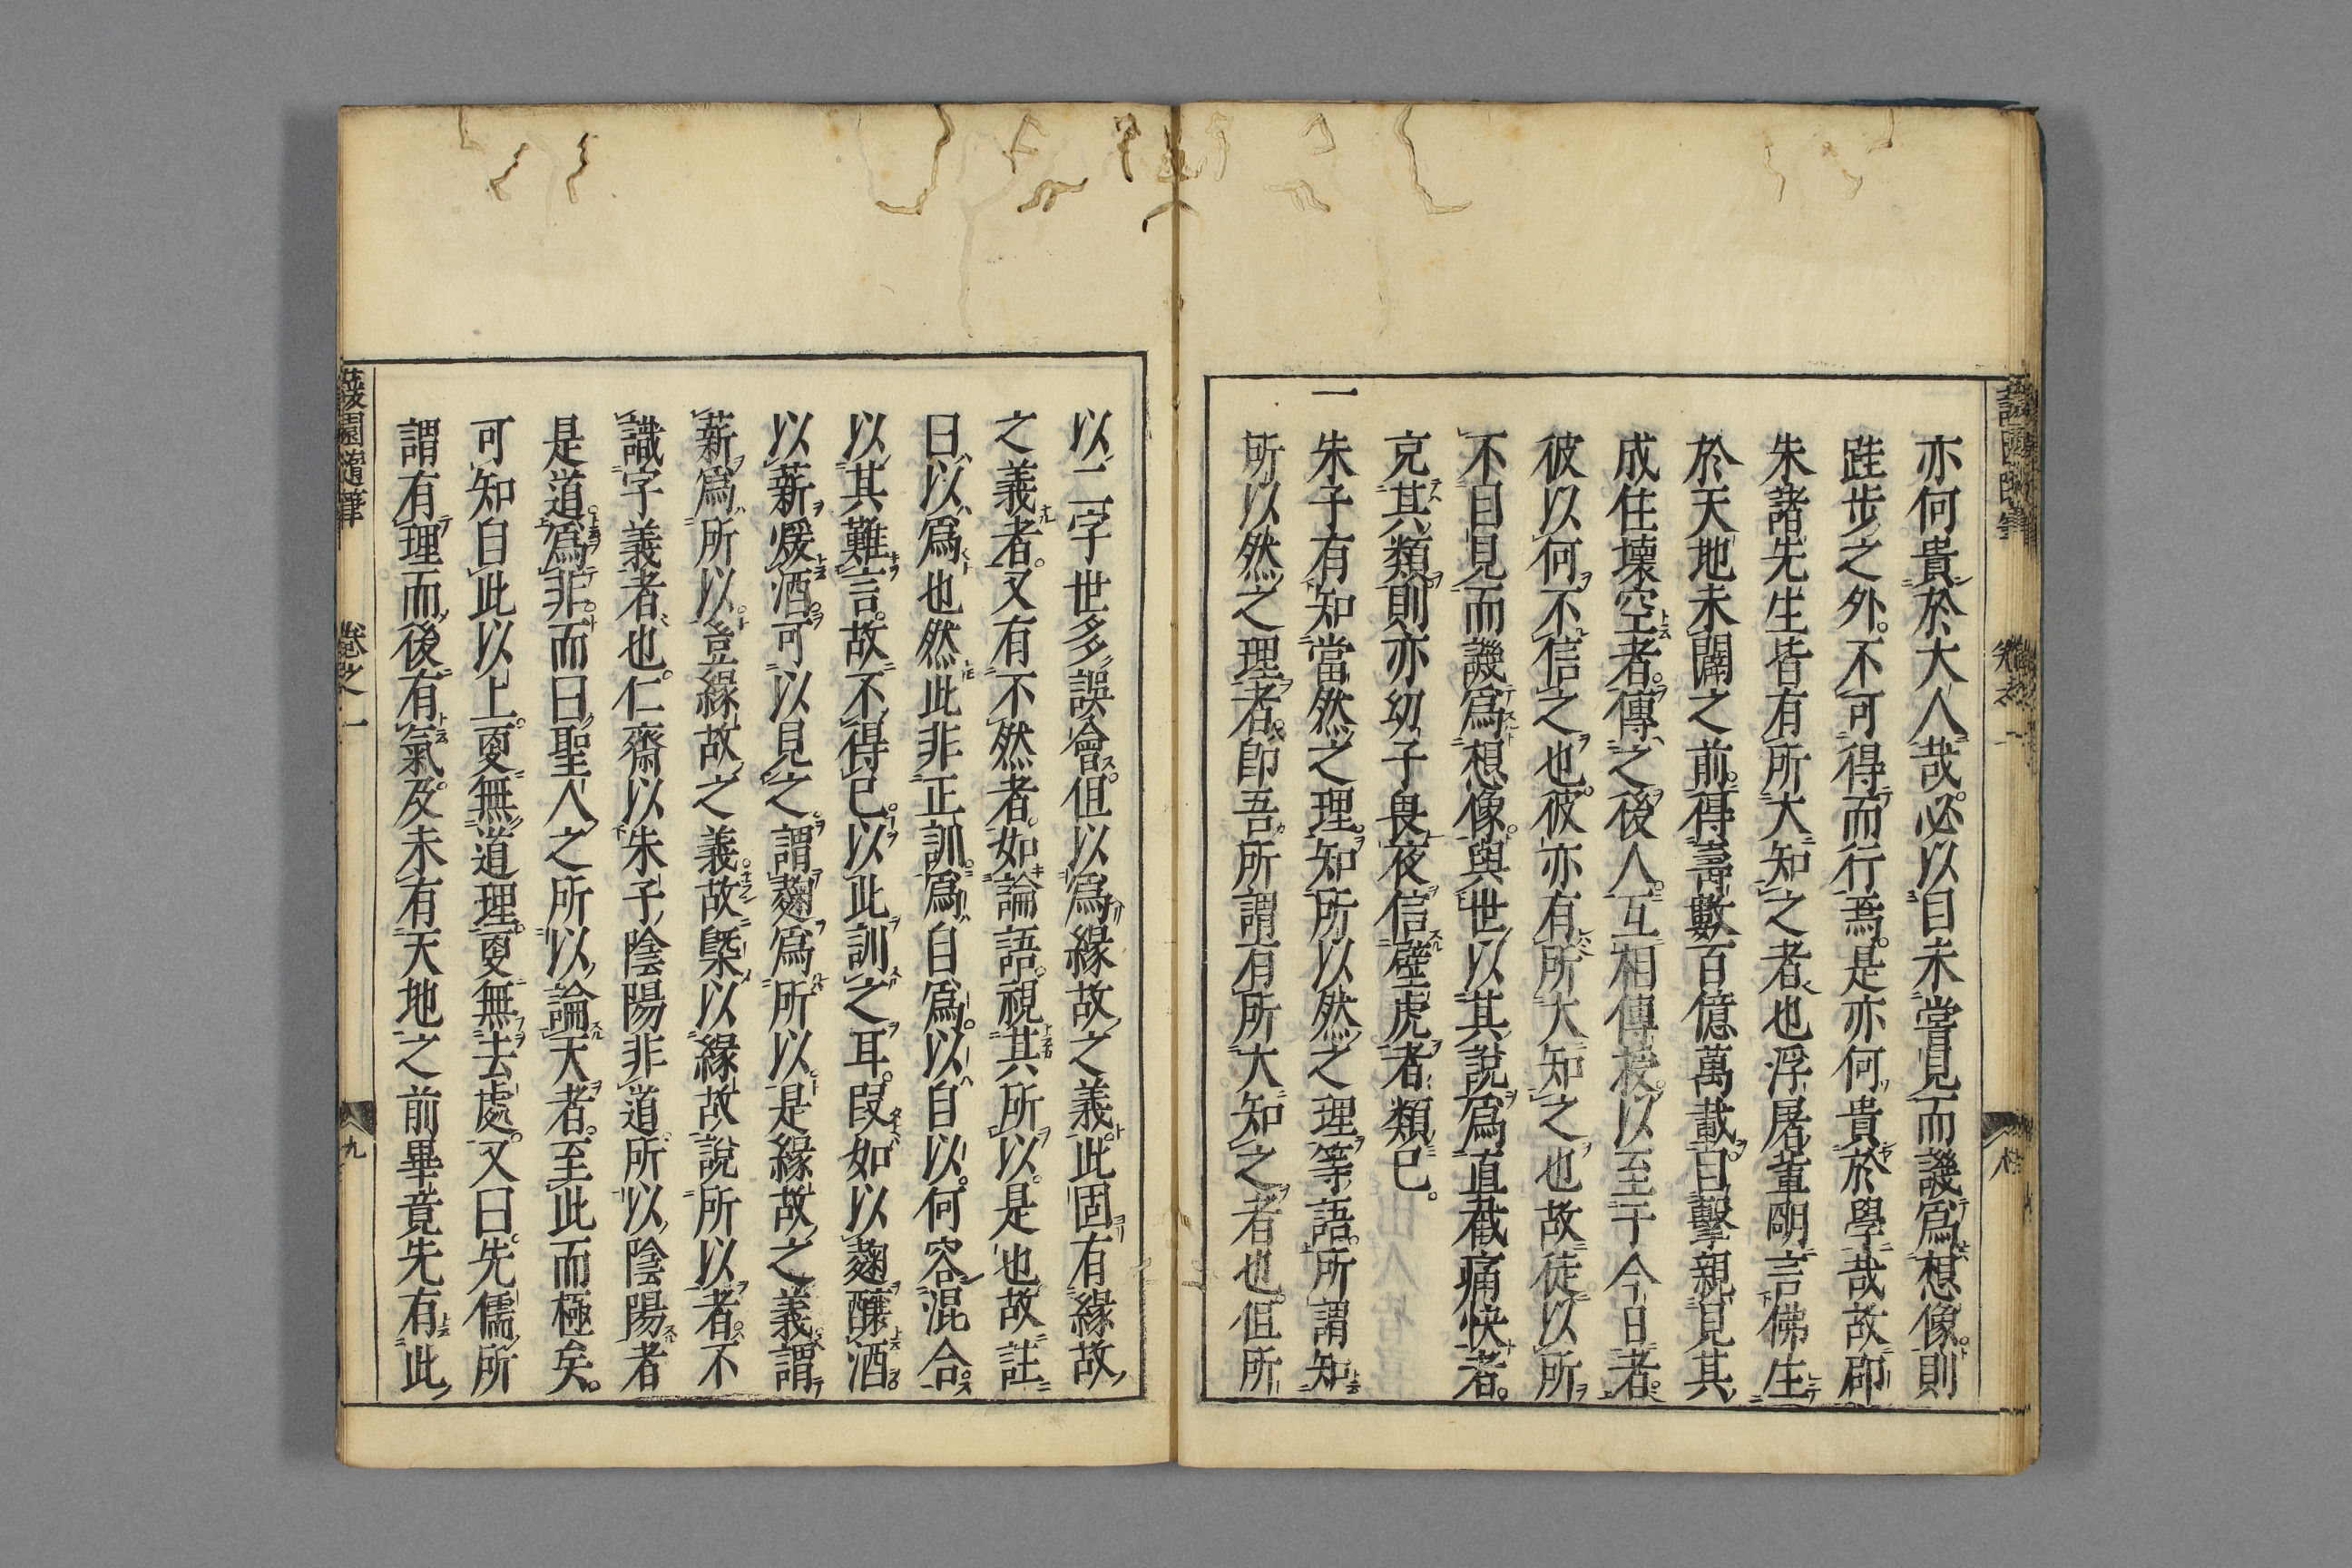 亦何貴於大人哉。必以目未嘗見而譏爲想像。則
跬步之外。不可得而行焉。是亦何貴於學哉故邵
朱諸先生皆有所大知之者也浮屠輩明言佛生
於天地未闢之前。得壽數百億萬載。目擊親見其
成住壞空者。傳之後人。互相傳授。以至于今日者。
彼以何不信之也。彼亦有所大知之也故徒以所
不目見而譏爲想像。與世以其說爲直截痛快者。
克其類則亦幼子畏夜信壁虎者類已。
一朱子有知當然之理。知所以然之理等語。所謂知
所以然之理者。即吾所謂有所大知之者也。但所
以二字世多誤會。但以爲緣故之義。此固有緣故
之義者。又有不然者。如論語。視其所以。是也故註
曰以爲也然此非正訓。爲自爲。以自以。何容混合。
以其難言。故不得已。以此訓之耳。叚如以麹釀酒
以薪煖酒。可以見之。謂麹爲所以。是緣故之義。謂
薪爲所以。豈緣故之義。故槩以緣故說所以者。不
識字義者也。仁齋以朱子陰陽非道。所以陰陽者
是道。爲非。而曰聖人之所以論天者。至此而極矣。
可知自此以上。更無道理。更無去處。又曰。先儒所
謂有理而後有氣。及未有天地之前畢竟先有此
蘐園隨筆 卷之一 九